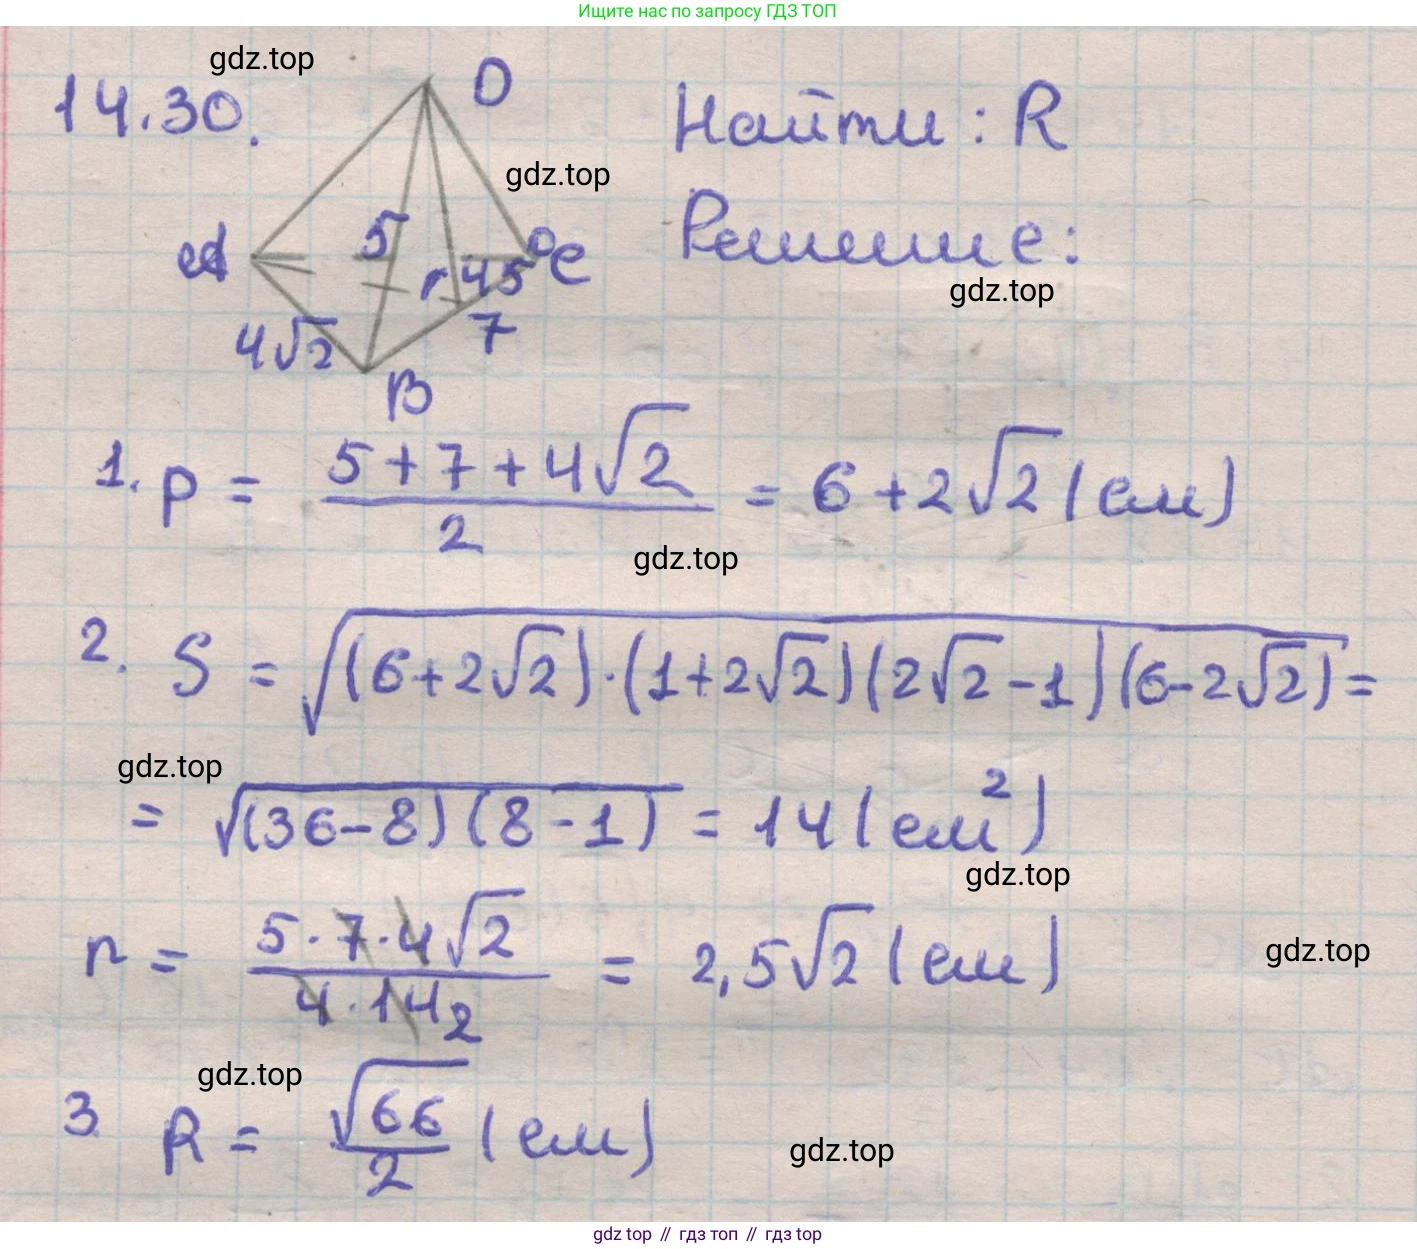 Ищите нас по запросу ГДЗ ТОП
gdz.top
14.30.
D
Найти: R
gdz.top
A
5
45°
C
Решение:
gdz.top
4√2
7
B
1. p = (5 + 7 + 4√2)/2 = 6 + 2√2 (см)
gdz.top
2. S = √((6+2√2)·(1+2√2)(2√2-1)(6-2√2)) =
gdz.top
= √((36-8)(8-1)) = 14 (см²)
gdz.top
r = (5·7·4√2)/(4·14 2) = 2,5√2 (см)
gdz.top
gdz.top
3. R = √66/2 (см)
gdz.top
gdz top // гдз топ // гдз top